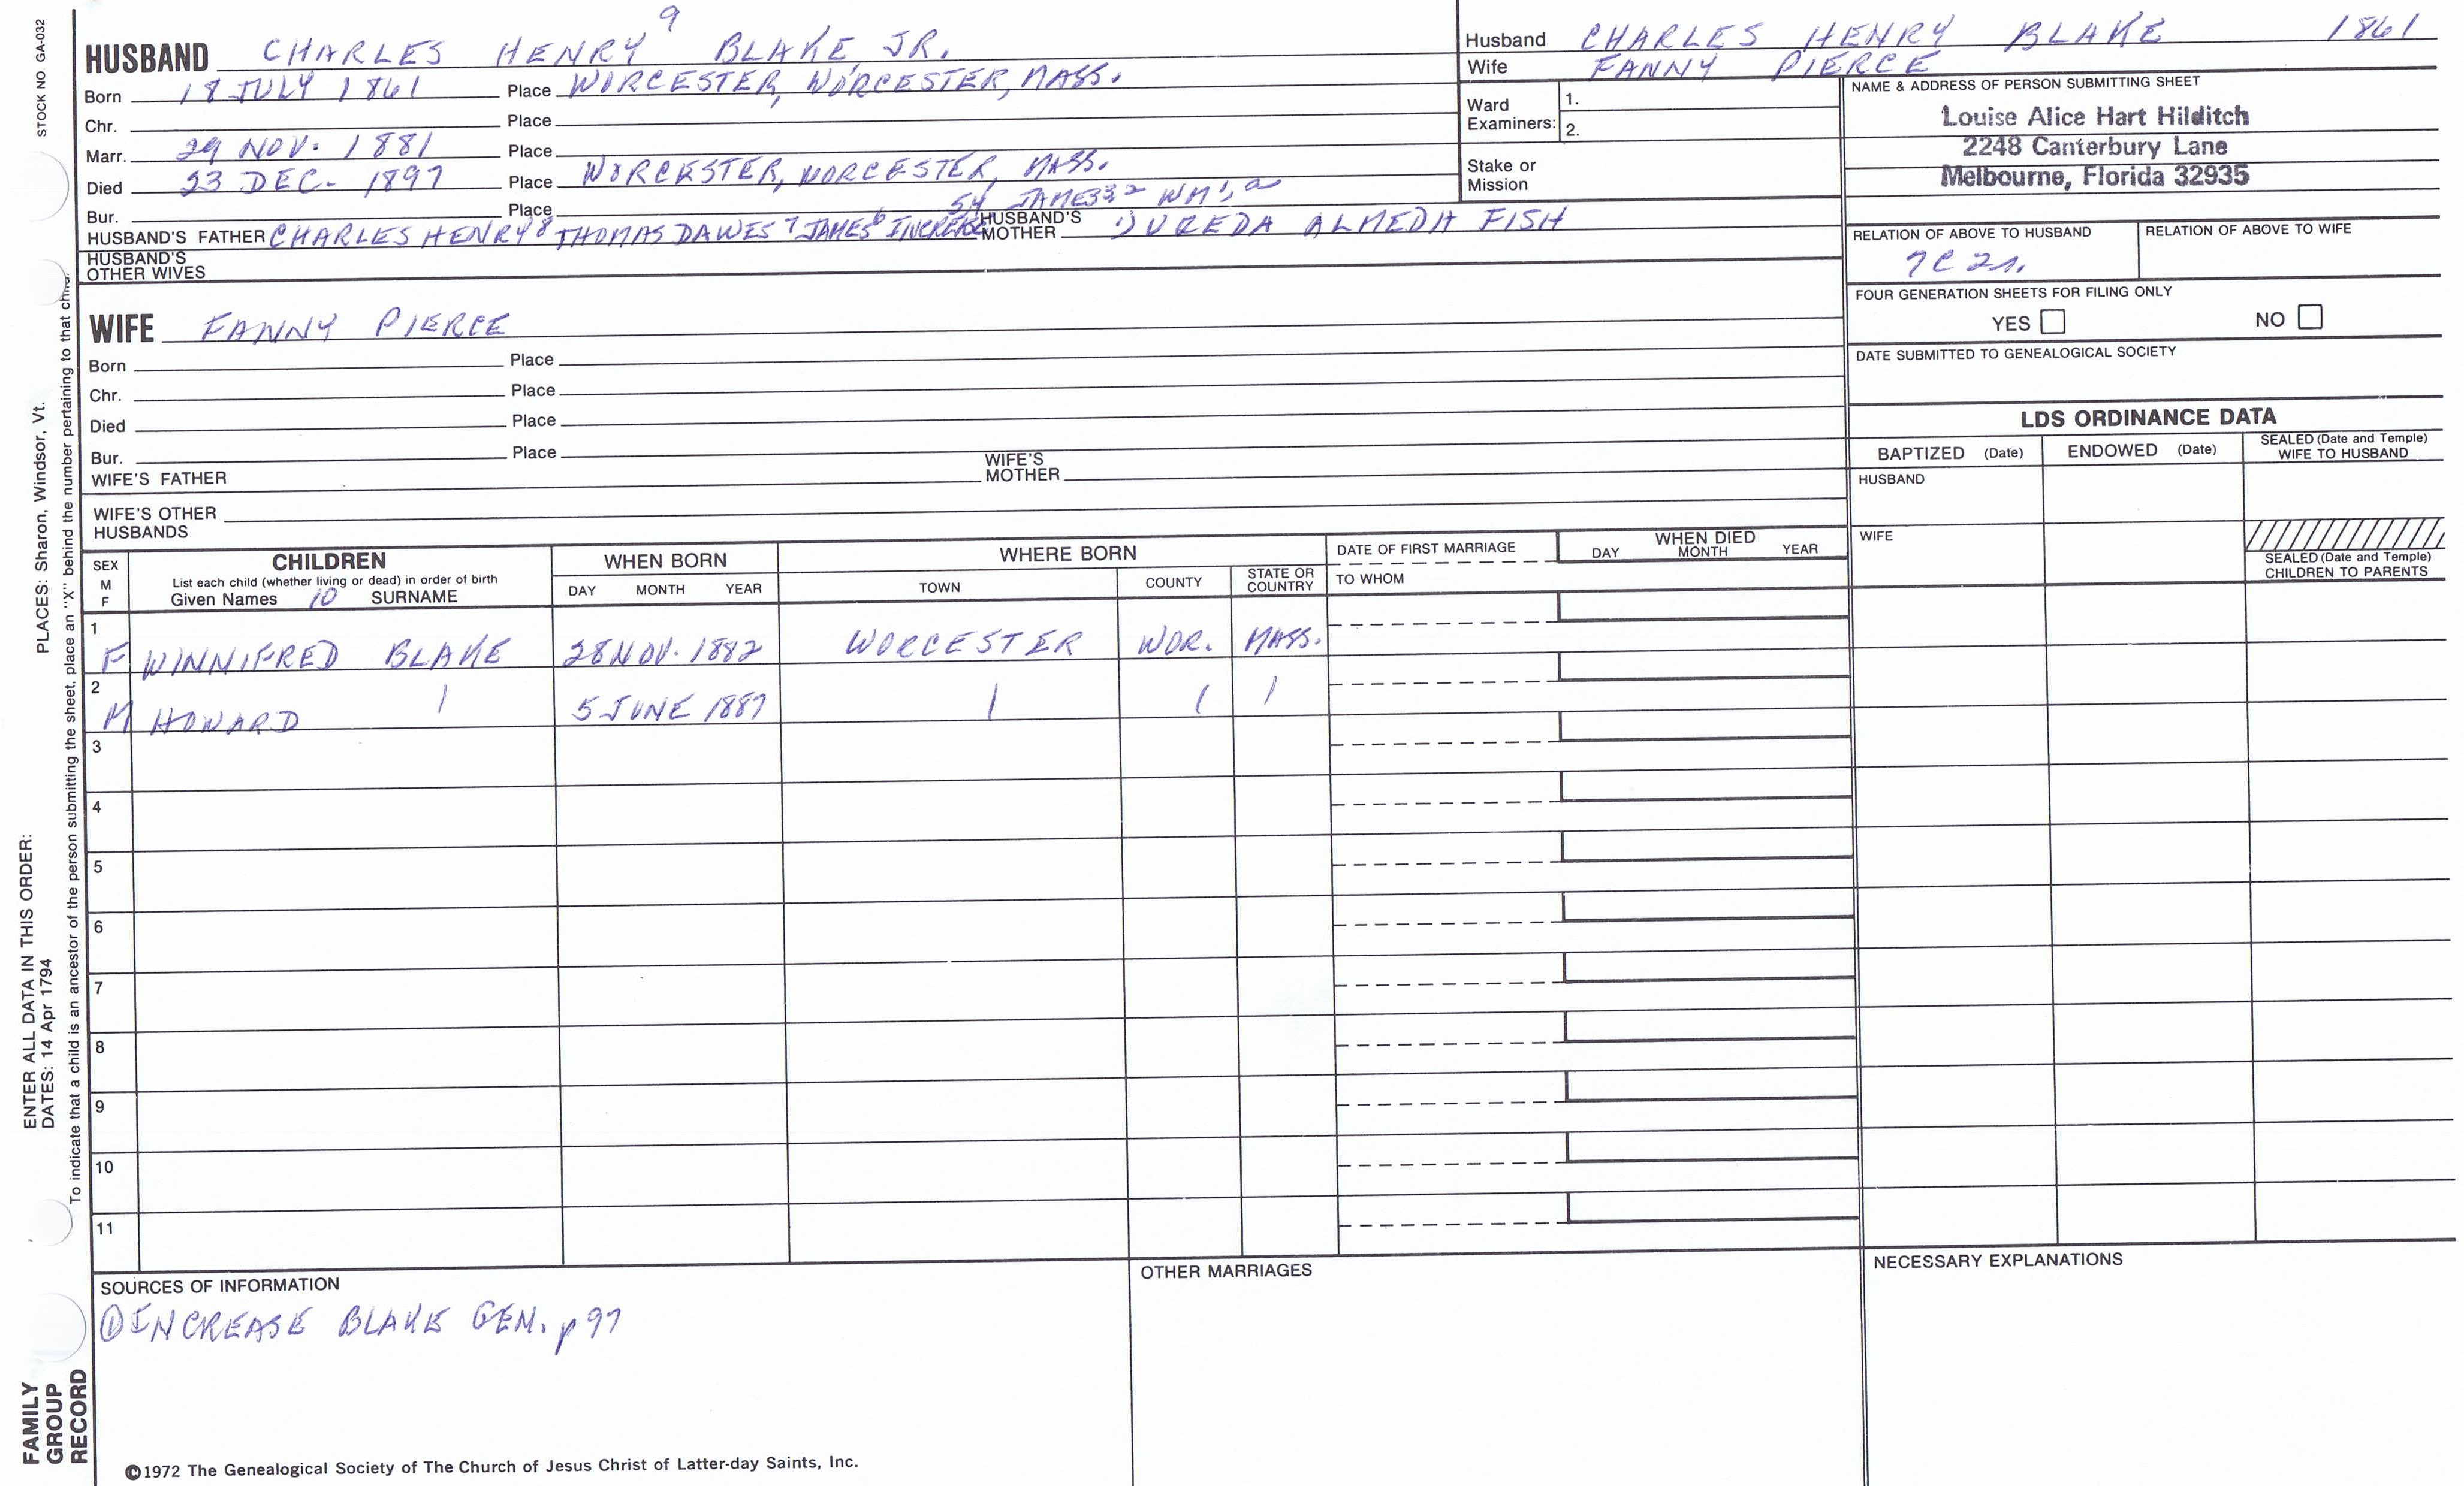 STOCK NO GA-032
PLACES: Sharon, Windsor, Vt.
ENTER ALL DATA IN THIS ORDER:
DATES: 14 Apr 1794
To indicate that a child is an ancestor of the person submitting the sheet, place an "X" behind the number pertaining to that child.
FAMILY
GROUP
RECORD
9
HUSBAND CHARLES HENRY BLAKE, JR.
Born 18 JULY 1861 Place WORCESTER, WORCESTER, MASS.
Chr. Place
Marr. 29 NOV. 1881 Place
Died 23 DEC. 1897 Place WORCESTER, WORCESTER, MASS.
Bur. Place 54 JAMES32 WM1, a
HUSBAND'S FATHER CHARLES HENRY8 THOMAS DAWES7 JAMES6 INCREASE HUSBAND'S MOTHER ALMEDA FISH
HUSBAND'S
OTHER WIVES
WIFE FANNY PIERCE
Born Place
Chr. Place
Died Place
Bur. Place
WIFE'S FATHER WIFE'S MOTHER
WIFE'S OTHER
HUSBANDS
Husband CHARLES HENRY BLAKE 1861
Wife FANNY PIERCE
Ward Examiners: 1.
2.
Stake or
Mission
NAME & ADDRESS OF PERSON SUBMITTING SHEET
Louise Alice Hart Hilditch
2248 Canterbury Lane
Melbourne, Florida 32935
RELATION OF ABOVE TO HUSBAND RELATION OF ABOVE TO WIFE
7C 2r.
FOUR GENERATION SHEETS FOR FILING ONLY
YES NO
DATE SUBMITTED TO GENEALOGICAL SOCIETY
LDS ORDINANCE DATA
BAPTIZED (Date) ENDOWED (Date) SEALED (Date and Temple) WIFE TO HUSBAND
HUSBAND
WIFE
SEALED (Date and Temple)
CHILDREN TO PARENTS
SEX M F CHILDREN WHEN BORN WHERE BORN DATE OF FIRST MARRIAGE WHEN DIED
List each child (whether living or dead) in order of birth
Given Names 10 SURNAME DAY MONTH YEAR TOWN COUNTY STATE OR COUNTRY TO WHOM DAY MONTH YEAR
1 F WINNIFRED BLAKE 28 NOV. 1882 WORCESTER WOR. MASS.
2 M HOWARD | 5 JUNE 1887 | | |
3
4
5
6
7
8
9
10
11
SOURCES OF INFORMATION
① INCREASE BLAKE GEN. p 97
OTHER MARRIAGES
NECESSARY EXPLANATIONS
©1972 The Genealogical Society of The Church of Jesus Christ of Latter-day Saints, Inc.